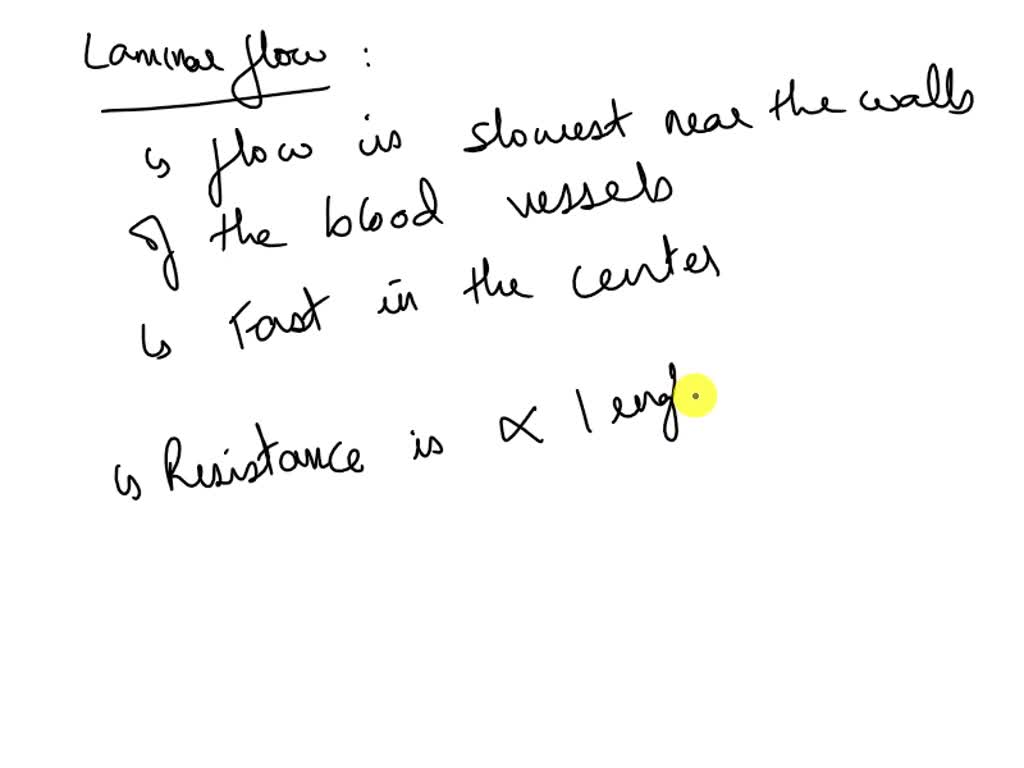 Laminar flow :
↳ flow is slowest near the walls
of the blood vessels
↳ Fast in the center
↳ Resistance is ∝ leng